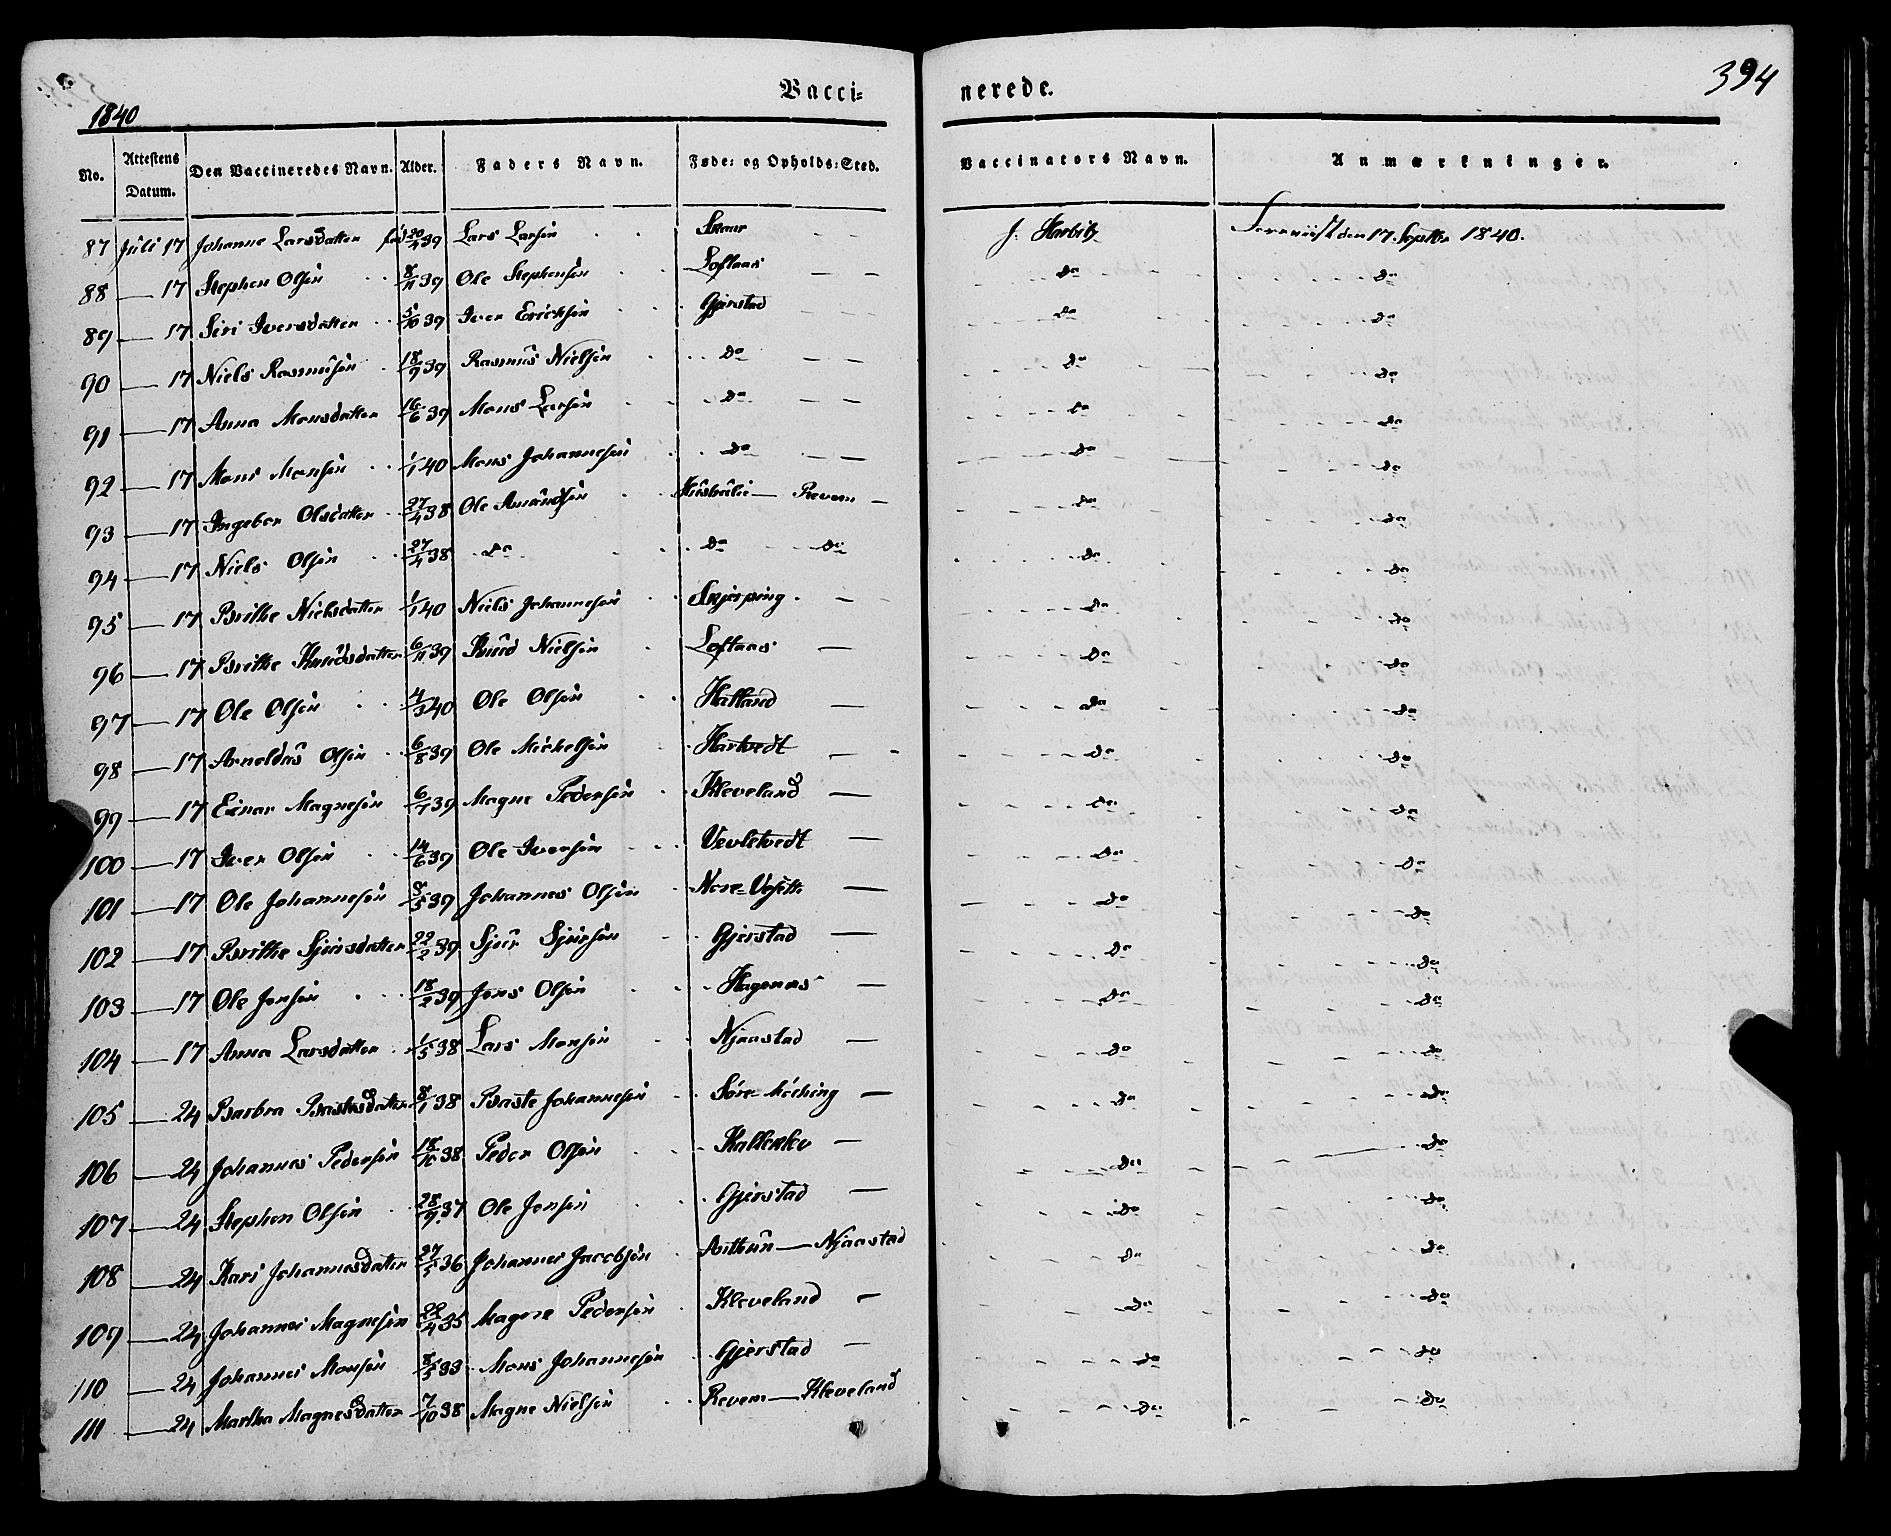 Vacci= nerede. 394
1840
No. Attestens Datum. Den Vaccineredes Navn. Alder. Faders Navn. Føde= og Opholds=Sted. Vaccinators Navn. Anmærkninger.
87 Juli 17 Johanne Larsdatter 20/4 39 Lars Larsen J. Harbitz den 17 Septbr 1840.
88 — 17 Stephen Olsen 8/11 39 Ole Stephensen Loftaas — — do do
89 — 17 Siri Iversdatter 5/10 39 Iver Erichsen Gjerstad do do
90 — 17 Niels Rasmusen 18/9 39 Rasmus Nielsen do — — do do
91 — 17 Anna Monsdatter 16/6 39 Mons Larsen do — — do do
92 — 17 Mons Monsen 1/1 40 Mons Johannesen do — — do do
93 — 17 Ingebor Olsdatter 27/4 38 Ole Amundsen — Revem — do do
94 — 17 Niels Olsen 27/4 38 do do do do do
95 — 17 Brithe Nielsdatter 1/1 40 Niels Johannesen Skjerping — do do
96 — 17 Brithe Knudsdatter 6/11 39 Knud Nielsen Loftaas — do do
97 — 17 Ole Olsen 4/3 40 Ole Olsen Hatland — do do
98 — 17 Arnoldus Olsen 6/8 39 Ole Michelsen Hartvedt — do do
99 — 17 Einar Magnesen 6/7 39 Magne Pedersen Kleveland — do do
100 — 17 Iver Olsen 14/6 39 Ole Iversen Vevletvedt — do do
101 — 17 Ole Johannesen 8/5 39 Johannes Olsen — do do
102 — 17 Brithe Sjursdatter 22/2 39 Sjur Sjursen Gjerstad — do do
103 — 17 Ole Jensen 18/2 39 Jens Olsen Hagenæs — do do
104 — 17 Anna Larsdatter 1/5 38 Lars Monsen Njaastad — do do
105 — 24 Barbra Bastesdatter 8/1 38 Baste Johannesen — do do
106 — 24 Johannes Pedersen 18/10 38 Peder Olsen — do do
107 — 24 Stephen Olsen 28/9 37 Ole Jensen Gjerstad — do do
108 — 24 Kari Johannesdatter 27/5 36 Johannes Jacobsen Austrun — Njaastad do do
109 — 24 Johannes Magnesen 22/4 35 Magne Pedersen Kleveland — do do
110 — 24 Johannes Monsen 8/5 33 Mons Johannesen Gjerstad — do do
111 — 24 Martha Magnesdatter 7/10 38 Magne Nielsen Revem — Kleveland do do